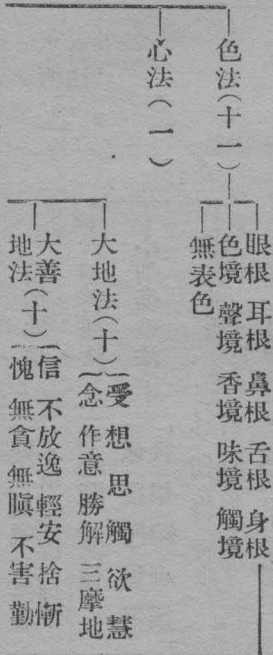 色法（十一）
眼根 耳根 鼻根 舌根 身根
色境 聲境 香境 味境 觸境
無表色
心法（一）
大地法（十）
受 想 思 觸 欲 慧
念 作意 勝解 三摩地
大善地法（十）
信 不放逸 輕安 捨 慚
愧 無貪 無瞋 不害 勤